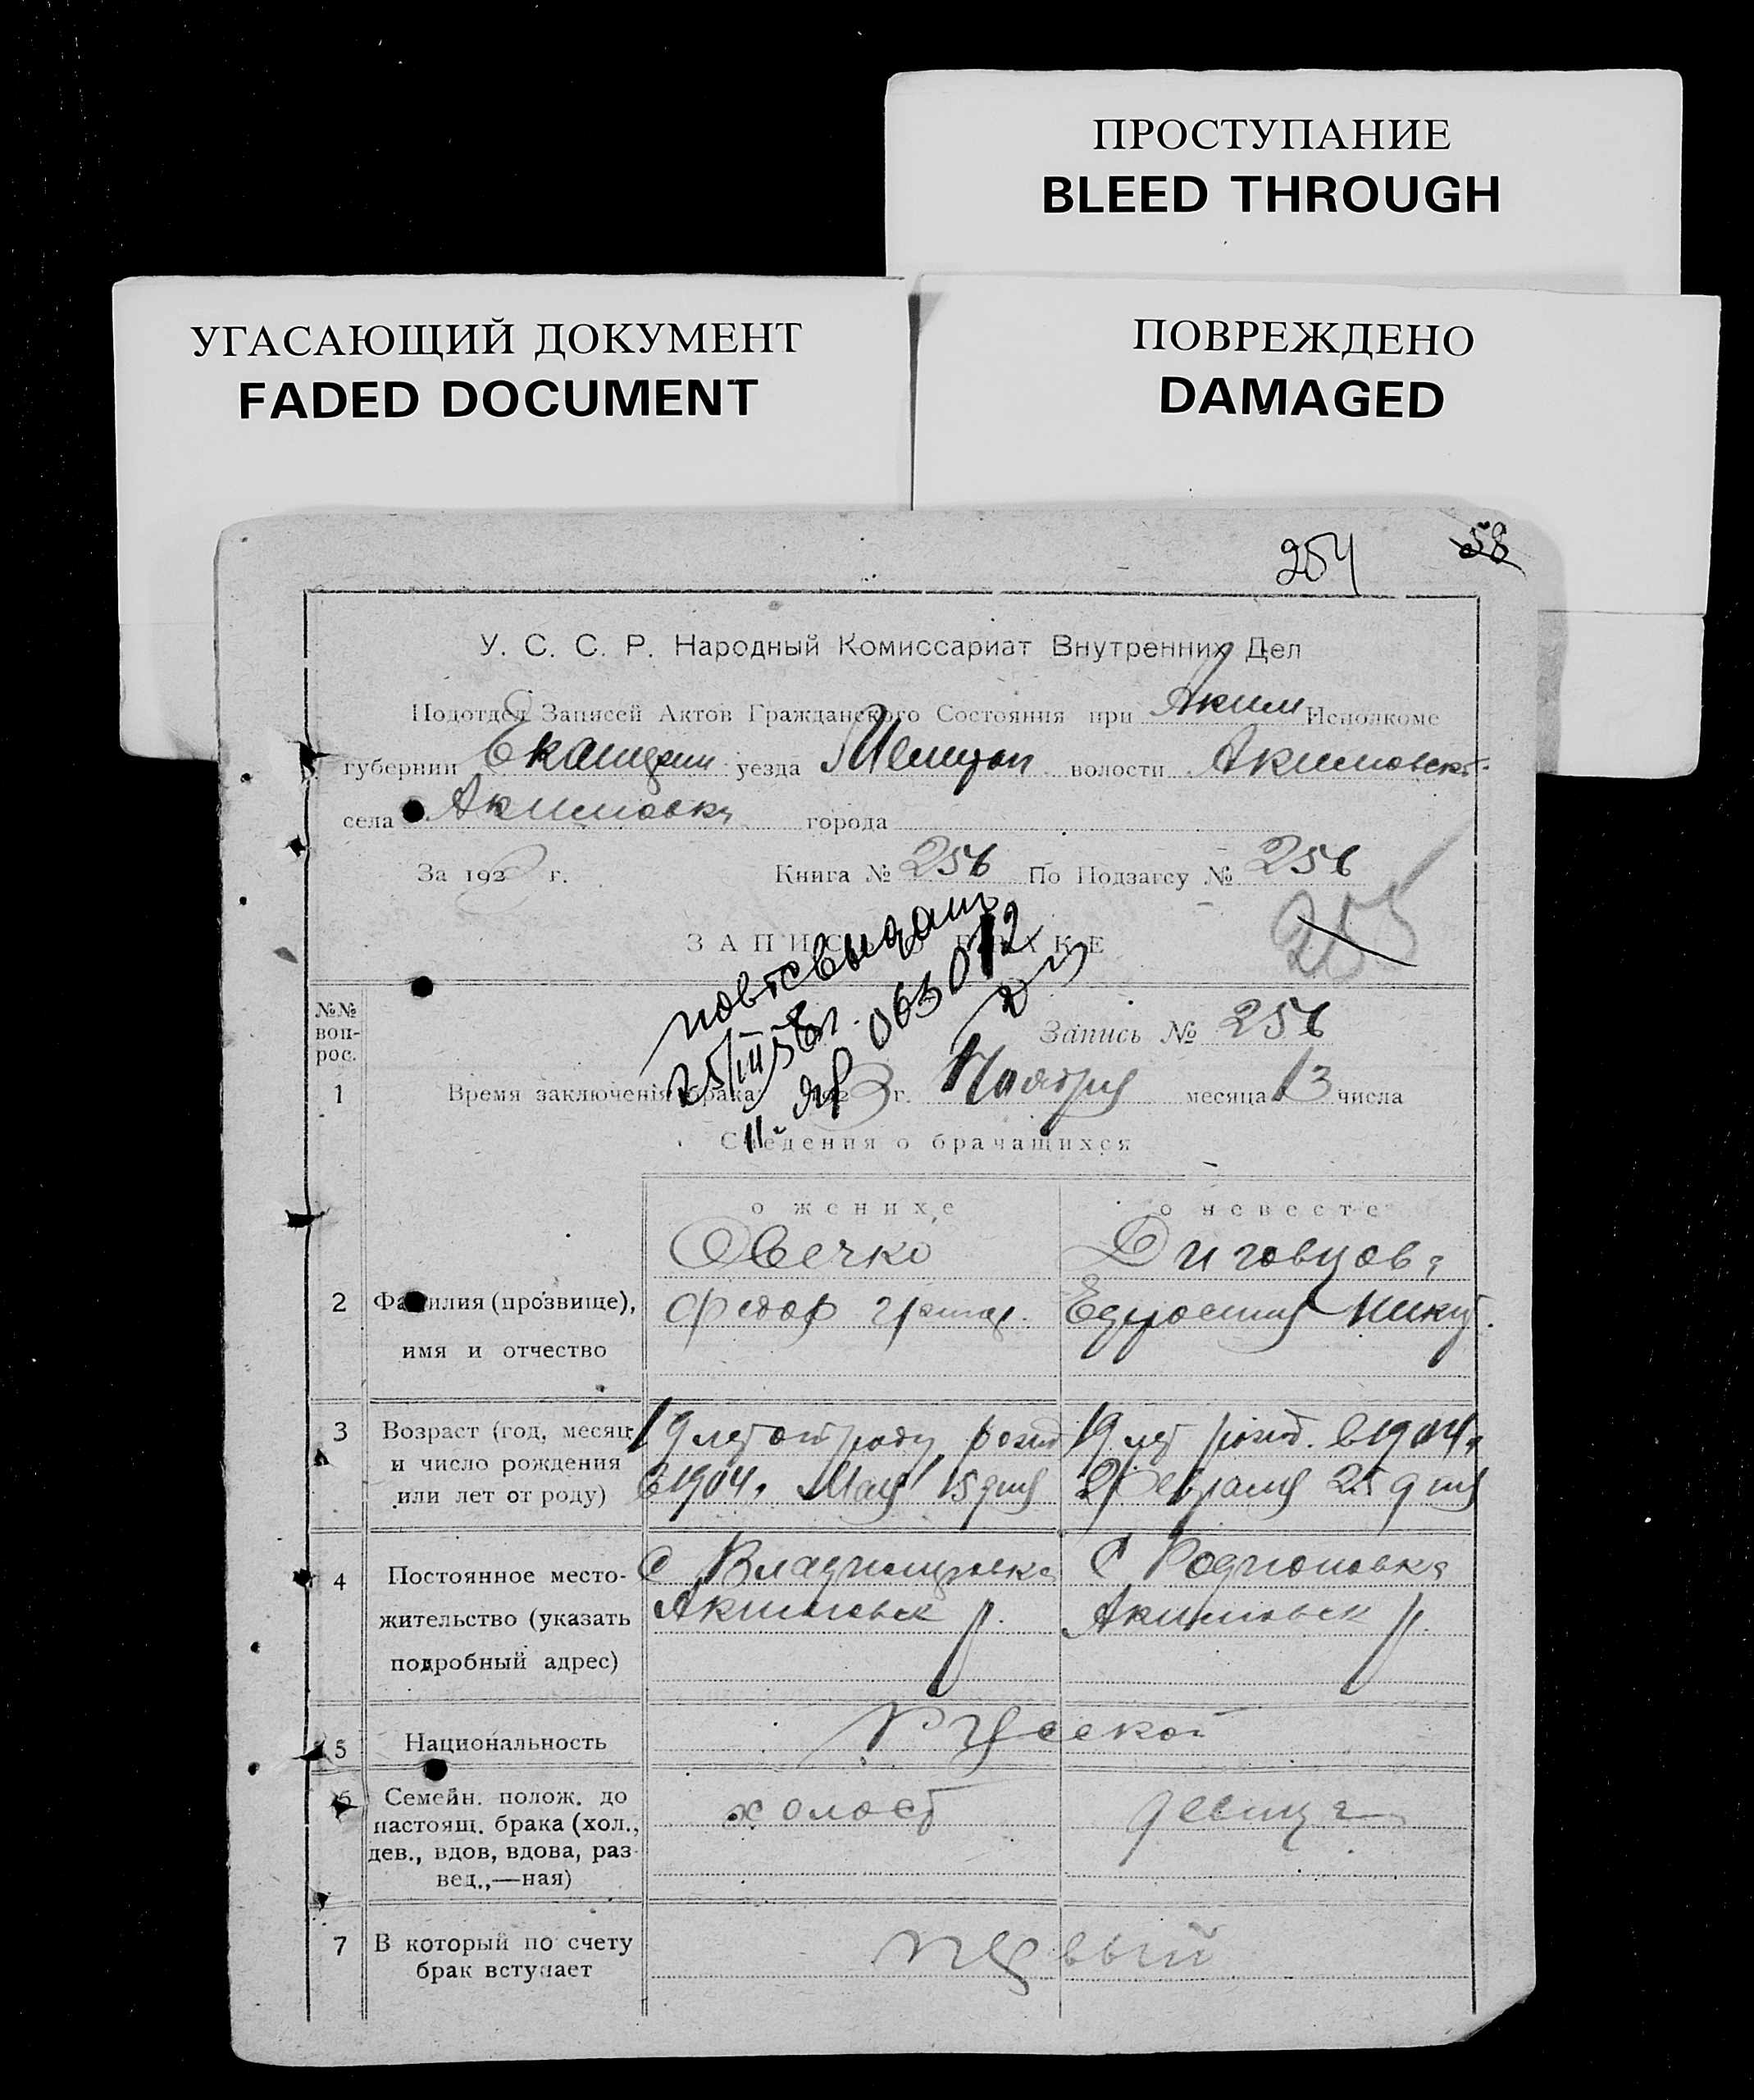 ПРОСТУПАНИЕ
BLEED THROUGH
УГАСАЮЩИЙ ДОКУМЕНТ
FADED DOCUMENT
ПОВРЕЖДЕНО
DAMAGED
254 58
У. С. С. Р. Народный Комиссариат Внутренних Дел
Подотдел Записей Актов Гражданского Состояния при Аким Исполкоме
губернии уезда волости Акимовск.
села Акимовка города
За 192 г. Книга № 256 По Подзагсу № 256
ЗАПИСЬ О БРАКЕ 255
25/III
063012
№№ воп-рос.
Запись № 256
1 Время заключенія брака 1923 г. Ноября месяца 13 числа
Сведения о брачащихся
о женихе о невесте
Овечко
2 Фамилия (прозвище), имя и отчество
Федор
3 Возраст (год, месяц и число рождения или лет от роду)
19 лет от роду рожд 19 лет рожд. в 1904 г
в 1904 г Мая 15 дня Февраля 25 дня
4 Постоянное место-жительство (указать подробный адрес)
С Владимировка С Родионовка
Акимовск р. Акимовск р.
5 Национальность Руской
6 Семейн. полож. до настоящ. брака (хол., дев., вдов, вдова, раз-вед.,—ная)
холост девица
7 В который по счету брак вступает первый